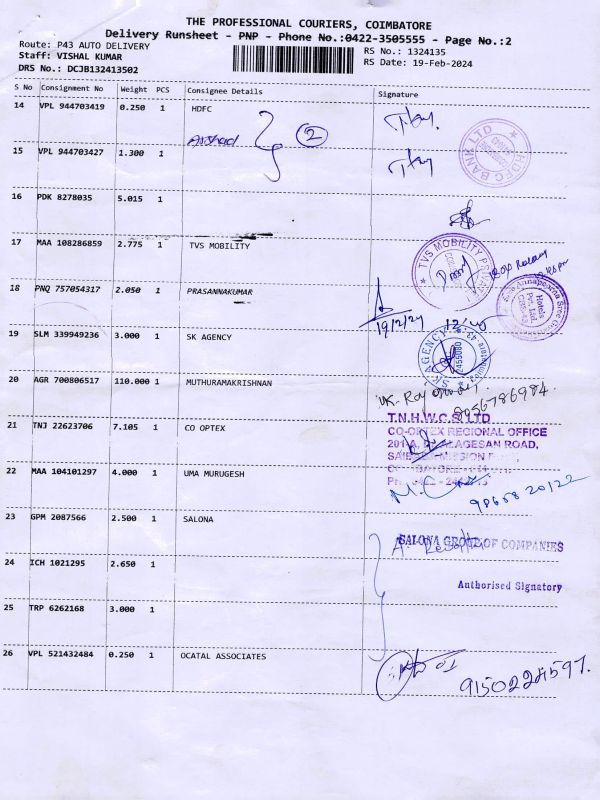 THE PROFESSIONAL COURIERS, COIMBATORE
Delivery Runsheet - PNP - Phone No.:0422-3505555 - Page No.:2
Route: P43 AUTO DELIVERY
RS No.: 1324135
Staff: VISHAL KUMAR
RS Date: 19-Feb-2024
DRS No.: DCJB132413502
S No Consignment No Weight PCS Consignee Details Signature
14 VPL 944703419 0.250 1 HDFC
Arshad 2
HDFC BANK LTD
15 VPL 944703427 1.300 1
16 PDK 8278035 5.015 1
17 MAA 108286859 2.775 1 TVS MOBILITY
TVS MOBILITY
18 PNQ 757054317 2.050 1 PRASANNAKUMAR
19/2/24
Hotels
19 SLM 339949236 3.000 1 SK AGENCY
SK AGENCY
20 AGR 700806517 110.000 1 MUTHURAMAKRISHNAN
21 TNJ 22623706 7.105 1 CO OPTEX
T.N.H.W.C.S. LTD
CO-OPTEX REGIONAL OFFICE
22 MAA 104101297 4.000 1 UMA MURUGESH
98658 20122
23 GPM 2087566 2.500 1 SALONA
SALONA GROUP OF COMPANIES
24 ICH 1021295 2.650 1
Authorised Signatory
25 TRP 6262168 3.000 1
26 VPL 521432484 0.250 1 OCATAL ASSOCIATES